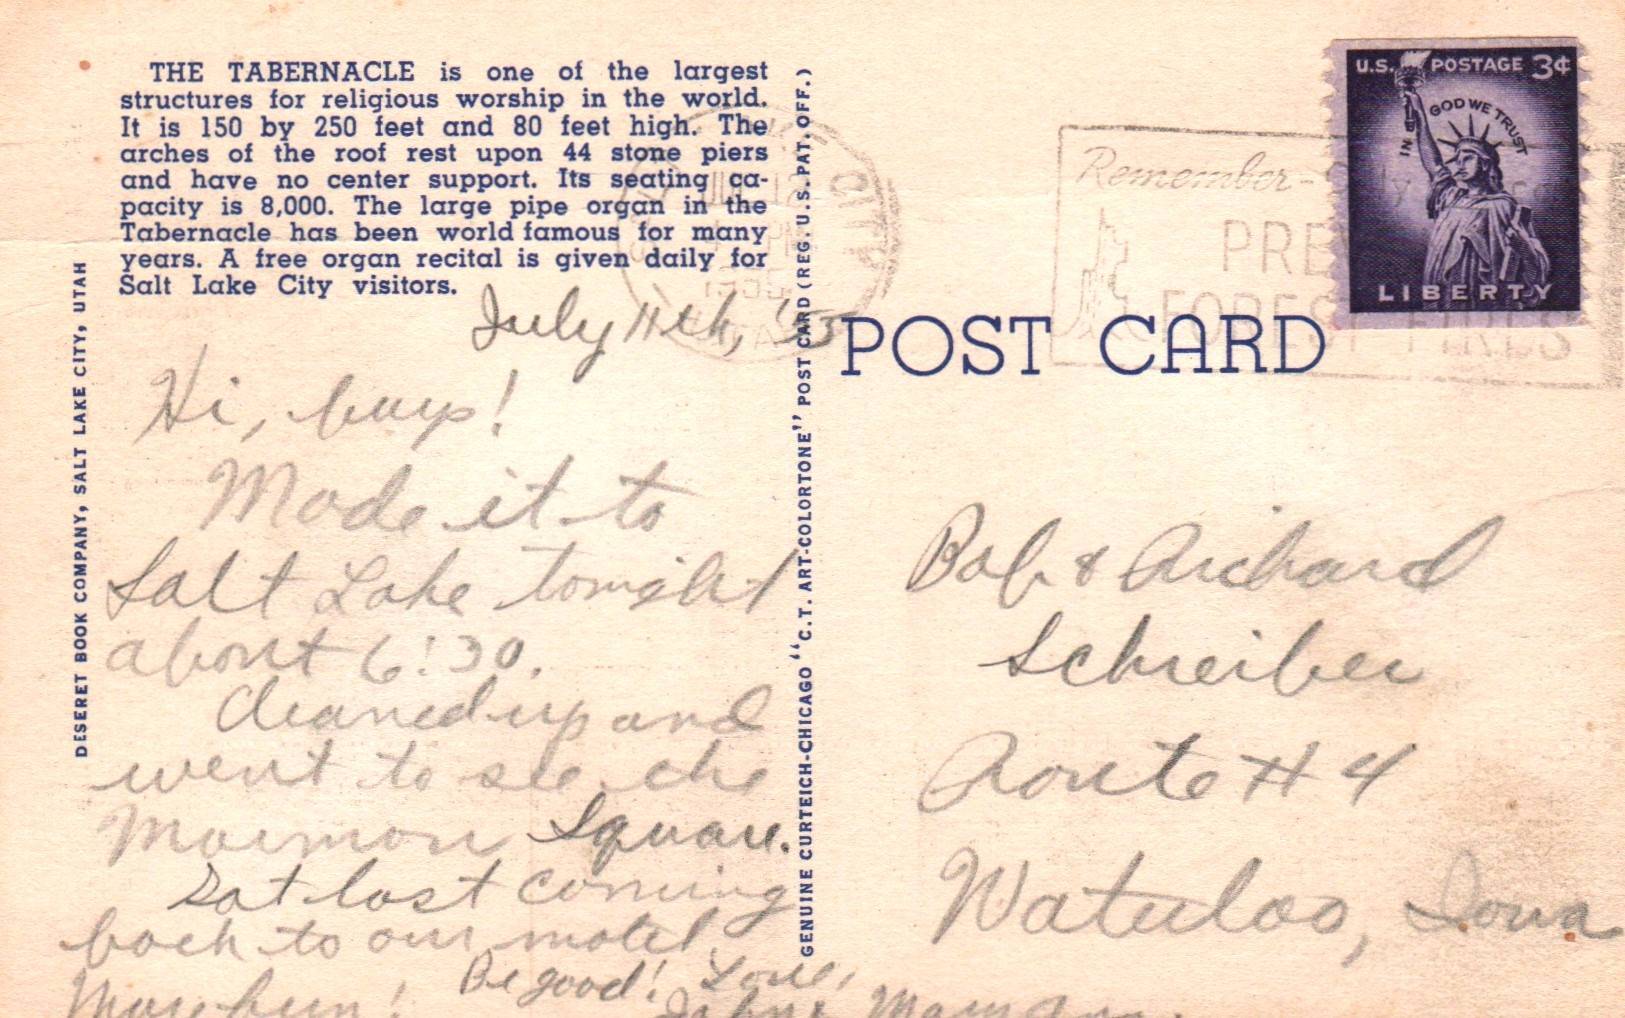 THE TABERNACLE is one of the largest
structures for religious worship in the world.
It is 150 by 250 feet and 80 feet high. The
arches of the roof rest upon 44 stone piers
and have no center support. Its seating ca-
pacity is 8,000. The large pipe organ in the
Tabernacle has been world famous for many
years. A free organ recital is given daily for
Salt Lake City visitors.
DESERET BOOK COMPANY, SALT LAKE CITY, UTAH
GENUINE CURTEICH-CHICAGO "C.T. ART-COLORTONE" POST CARD (REG. U.S. PAT. OFF.)
POST CARD
U.S. POSTAGE 3¢
IN GOD WE TRUST
LIBERTY
Remember-
PRE
FOREST FIRES
July 11th, '55
Hi, guys!
Made it to
Salt Lake tonight
about 6:30.
Cleaned up and
went to see the
Mormon Square.
Got lost coming
back to our motel.
More fun! Be good! Love,
John &
Bob & Richard
Schreiber
Route # 4
Waterloo, Iowa